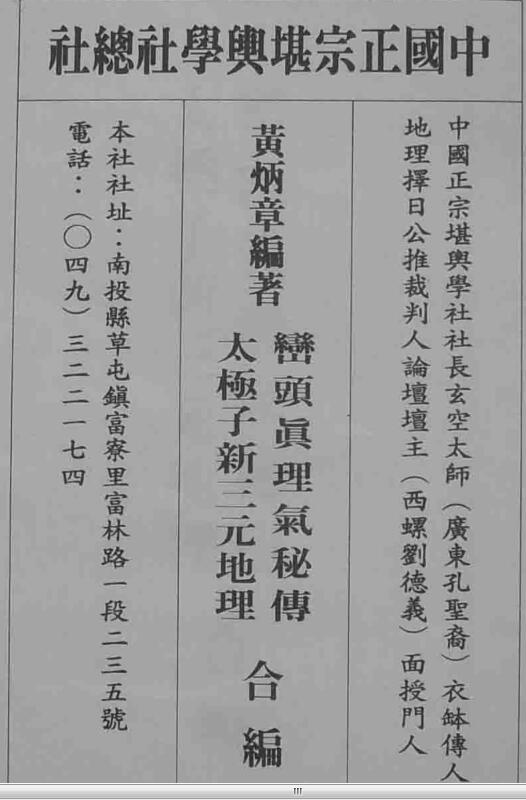 中國正宗堪輿學社總社
中國正宗堪輿學社社長玄空太師（廣東孔聖裔）衣缽傳人
地理擇日公推裁判人論壇壇主（西螺劉德義）面授門人
黃炳章編著
巒頭眞理氣秘傳
太極子新三元地理
合編
本社社址：南投縣草屯鎮富寮里富林路一段二三五號
電話：（〇四九）三二二一七四